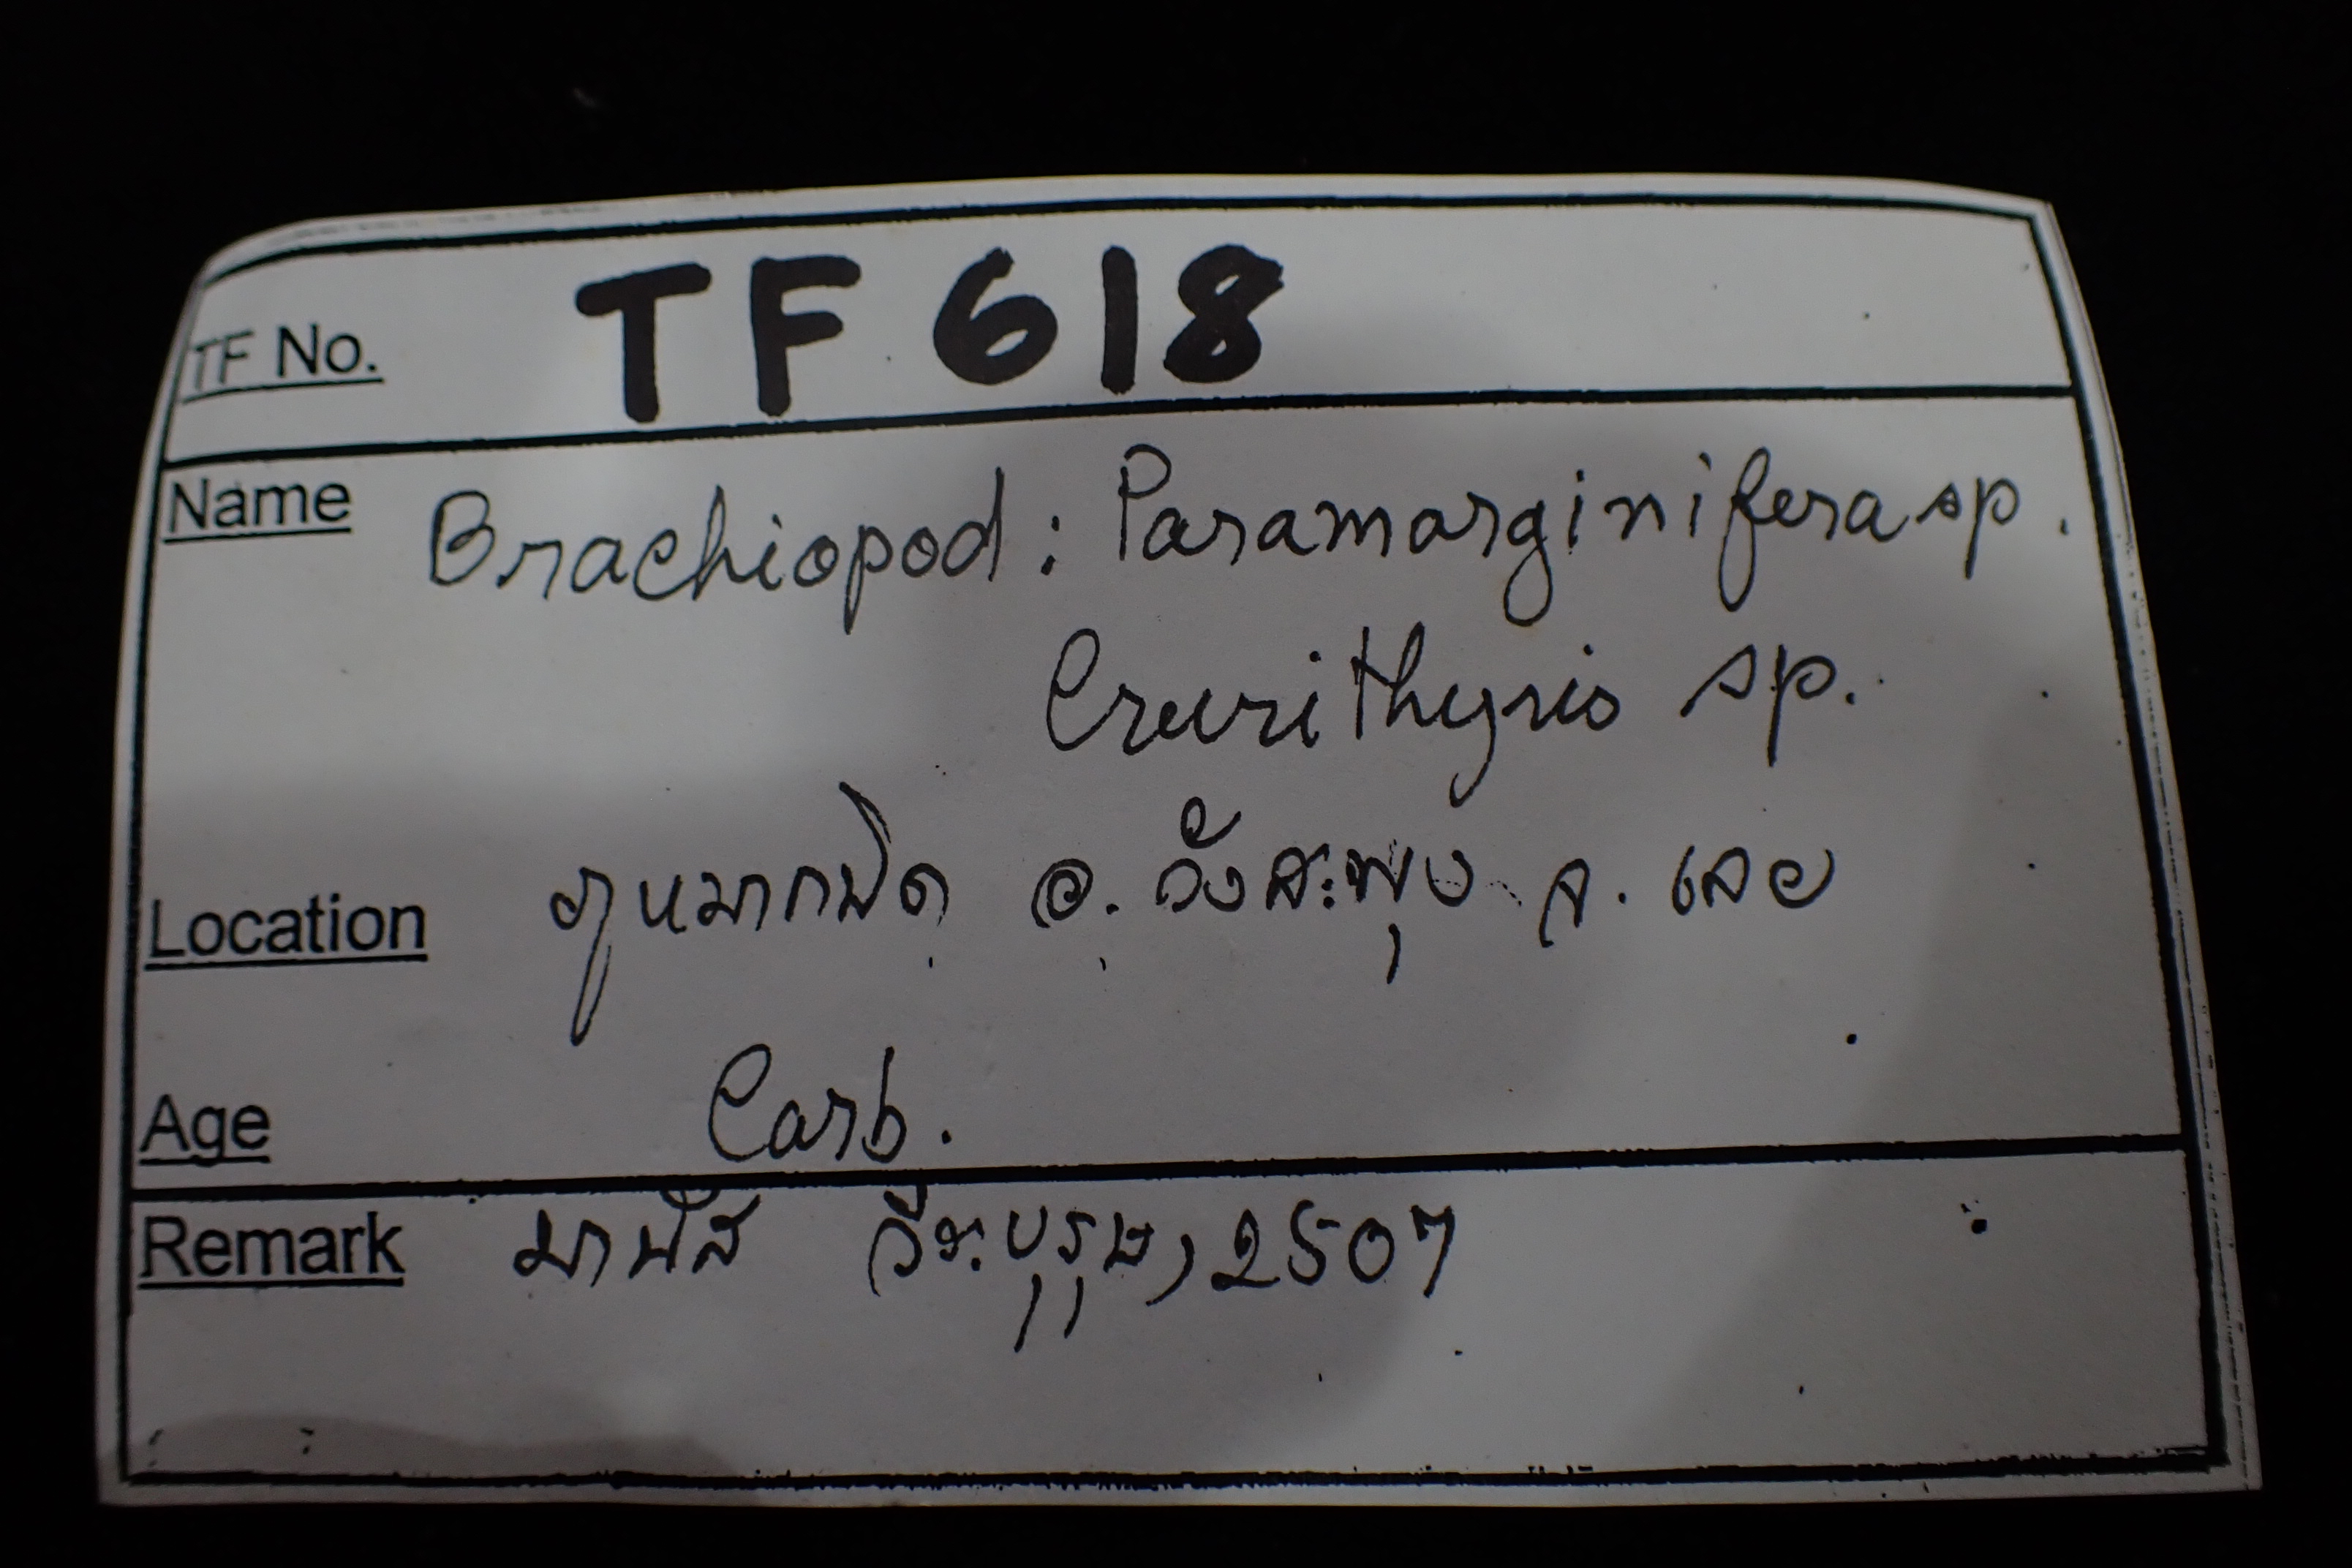 TF No. TF 618
Name Brachiopod : Paramarginifera sp.
Crurithyris sp.
Location อ. วังสะพุง จ. เลย
Age Carb.
Remark มานัส วีระบุรุษ, 2507